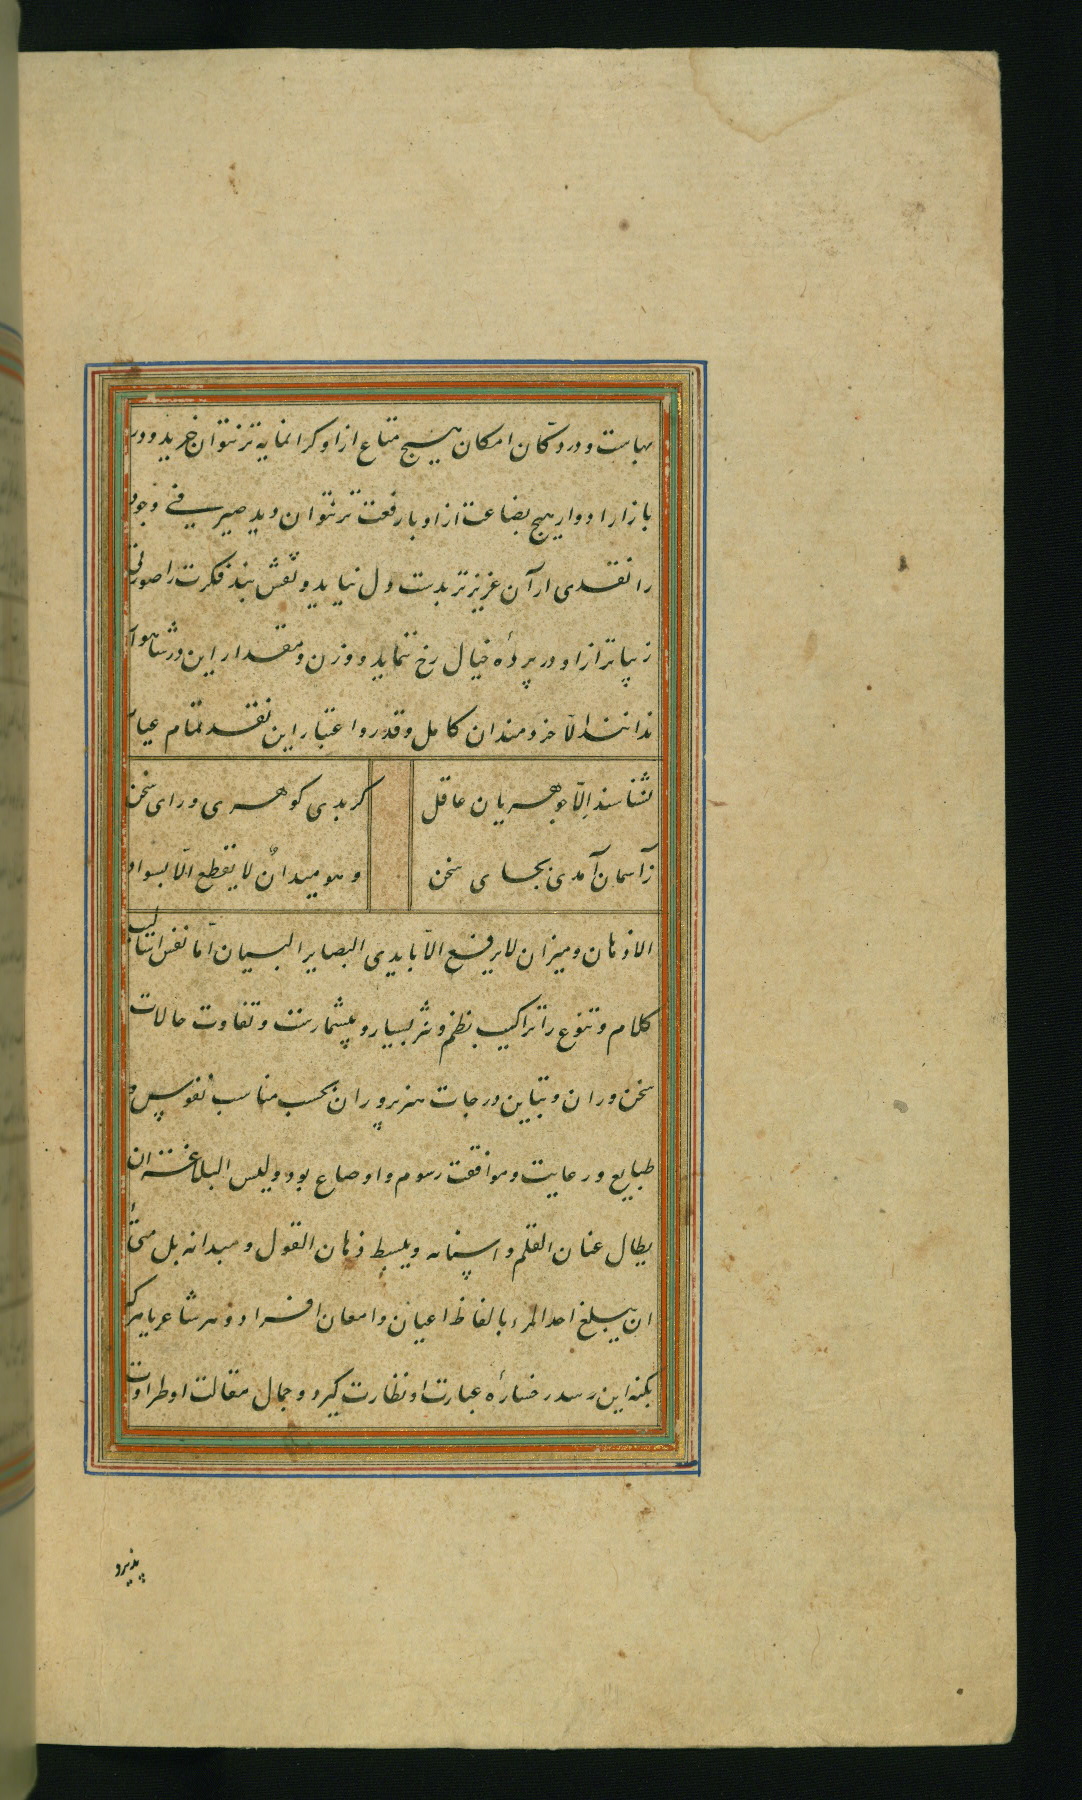 بهاست و در دکان امکان هیسج متاع ازو کرانمایه تر نتوان خرید و در
بازار ادوار هیچ بضاعت ازو بارفعت تر نتوان دید صیرفی وجود
را نقدی از آن عزیزتر بدست دل نیاید و نقش بند فکرت را صورتی
زیباتر ازو در پردهٔ خیال رخ ننماید و وزن و مقدار این در شاهوار
ندانند الّا خردمندان کامل و قدر و اعتبار این نقد تمام عیار
نشناسند اِلّا جوهریان عاقل کر بدی کوهری ورای سخن
زآسمان آمدی بجای سخن و هو میدانٌ لا یقطع الّا بسوابق
الاذهان و میزان لا یرفع الّا بایدی البصایر البیان امّا تفنن اسالیب
کلام و تنوع تراکیب نظم و نثر بسیار و بیشمارست و تفاوت حالات
سخن وران و تباین درجات هنرپروران بحسب مناسب نفوس و
طبایع و رعایت و موافقت رسوم و اوضاع بود و لیس البلاغة ان
یطال عنان القلم و اسنانه و یبسط رهان القول و میدانه بل هی
ان یبلغ امد المراد بالفاظ اعیان و امعان افراد و هر شاعر یا مرکه
بکنه این رسد رخسارهٔ عبارت او نظارت کیرد و جمال مقالت او طراوت
پذیرد